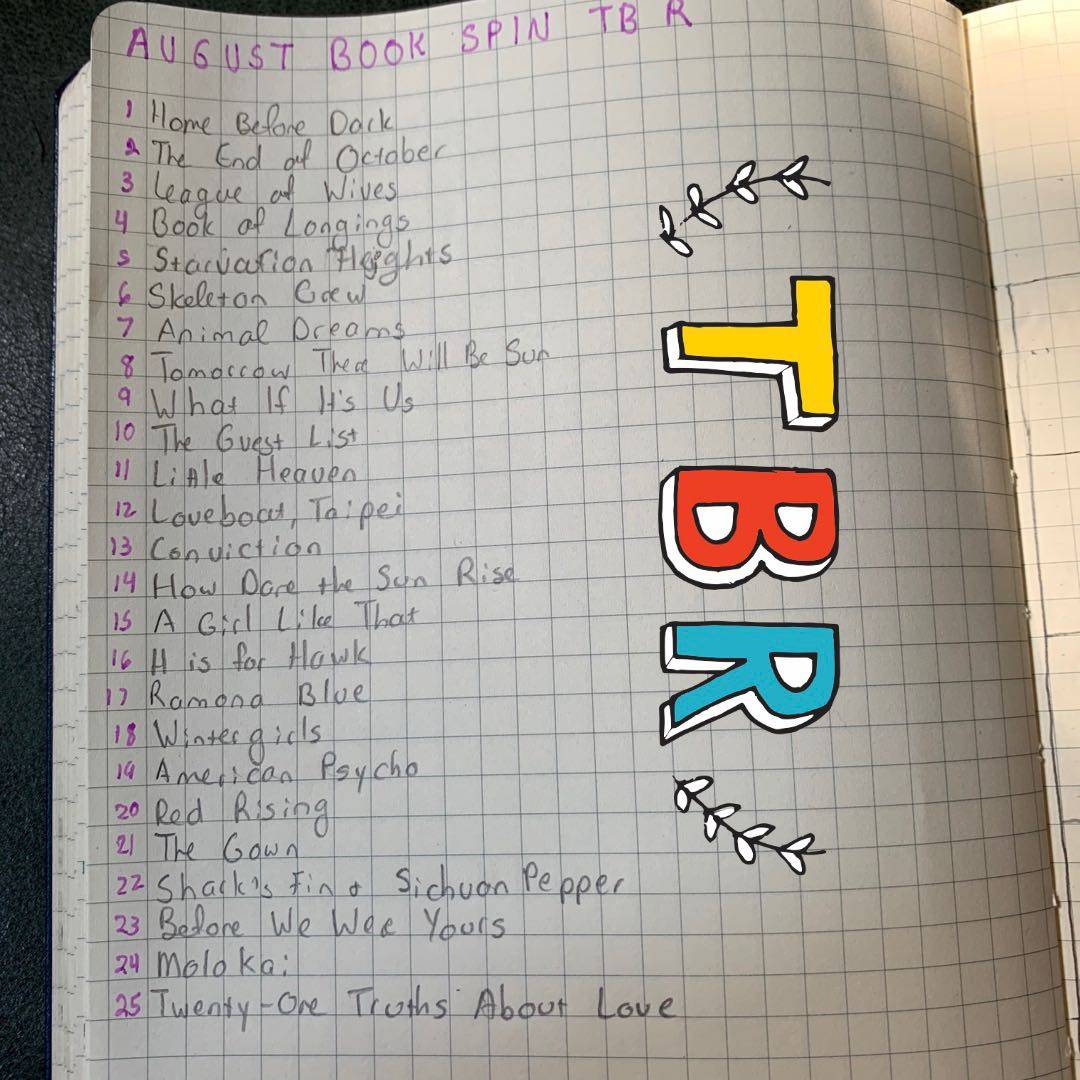 AUGUST BOOK SPIN TBR
1 Home Before Dark
2 The End of October
3 League of Wives
4 Book of Longings
5 Starvation Heights
6 Skeleton Crew
7 Animal Dreams
8 Tomorrow There Will Be Sun
9 What If It's Us
10 The Guest List
11 Little Heaven
12 Loveboat, Taipei
13 Conviction
14 How Dare the Sun Rise
15 A Girl Like That
16 H is for Hawk
17 Ramona Blue
18 Wintergirls
19 American Psycho
20 Red Rising
21 The Gown
22 Shark's Fin & Sichuan Pepper
23 Before We Wer Yours
24 Moloka'i
25 Twenty-One Truths About Love
TBR